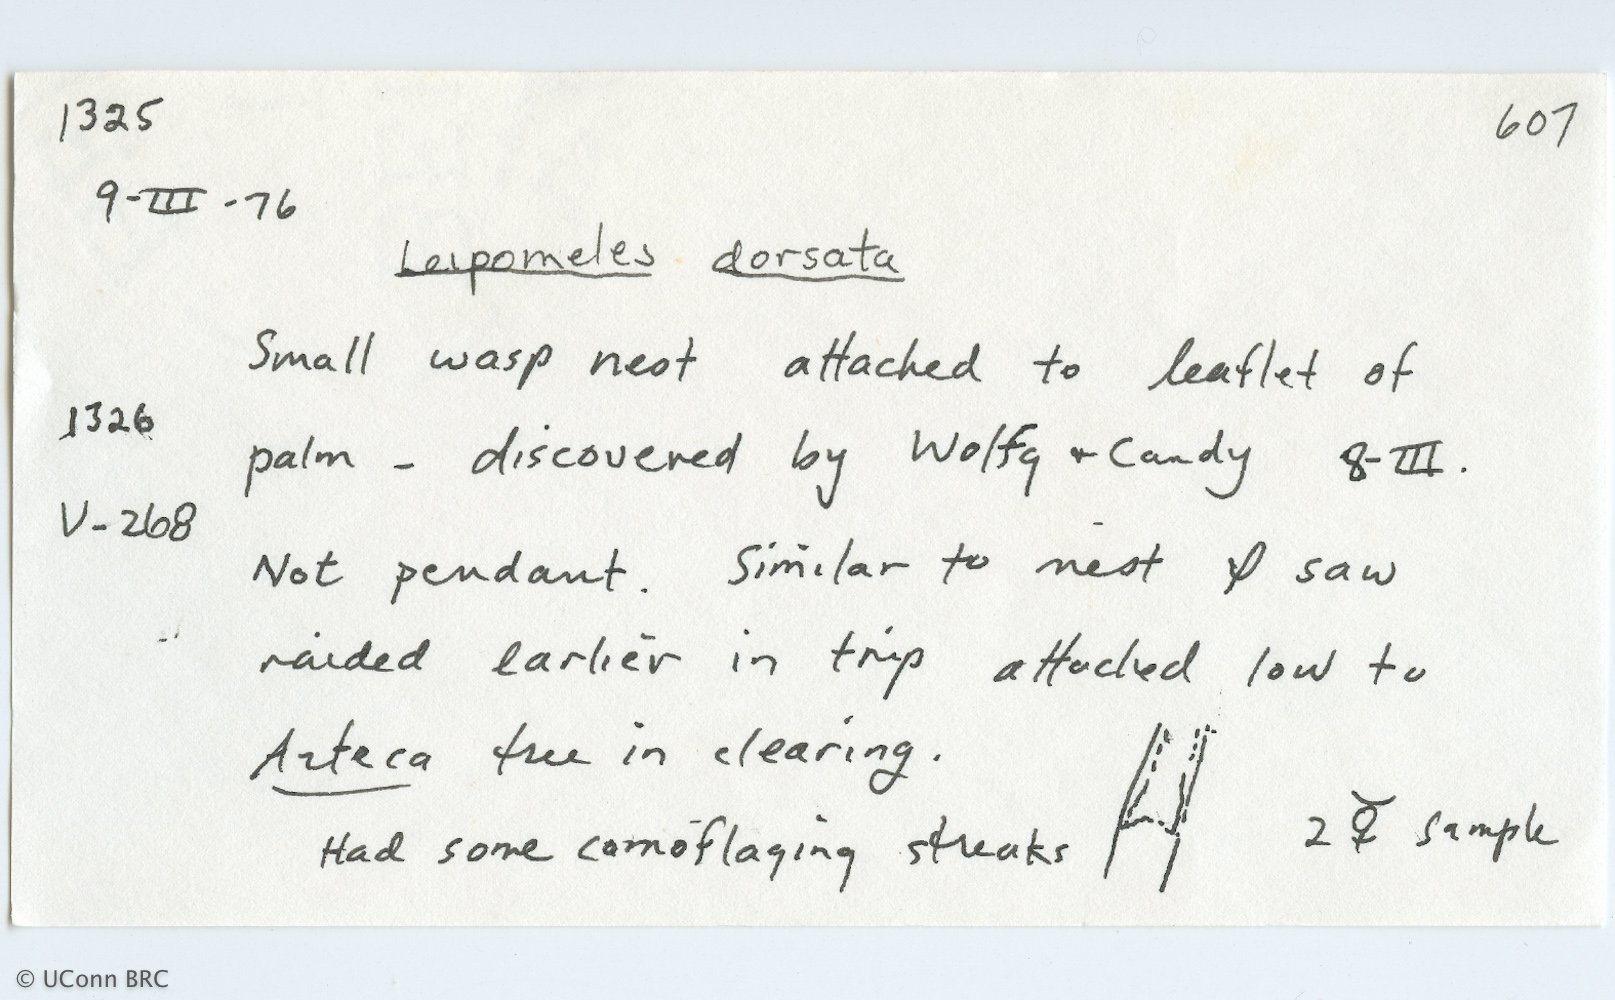 1325
607
9-III-76
Leipomeles dorsata
Small wasp nest attached to leaflet of
1326
palm - discovered by Wolfg + Candy 8-III.
V-268
Not pendant. Similar to nest I saw
raided earlier in trip attached low to
Azteca tree in clearing.
Had some camoflaging streaks
2 ☿ sample
© UConn BRC